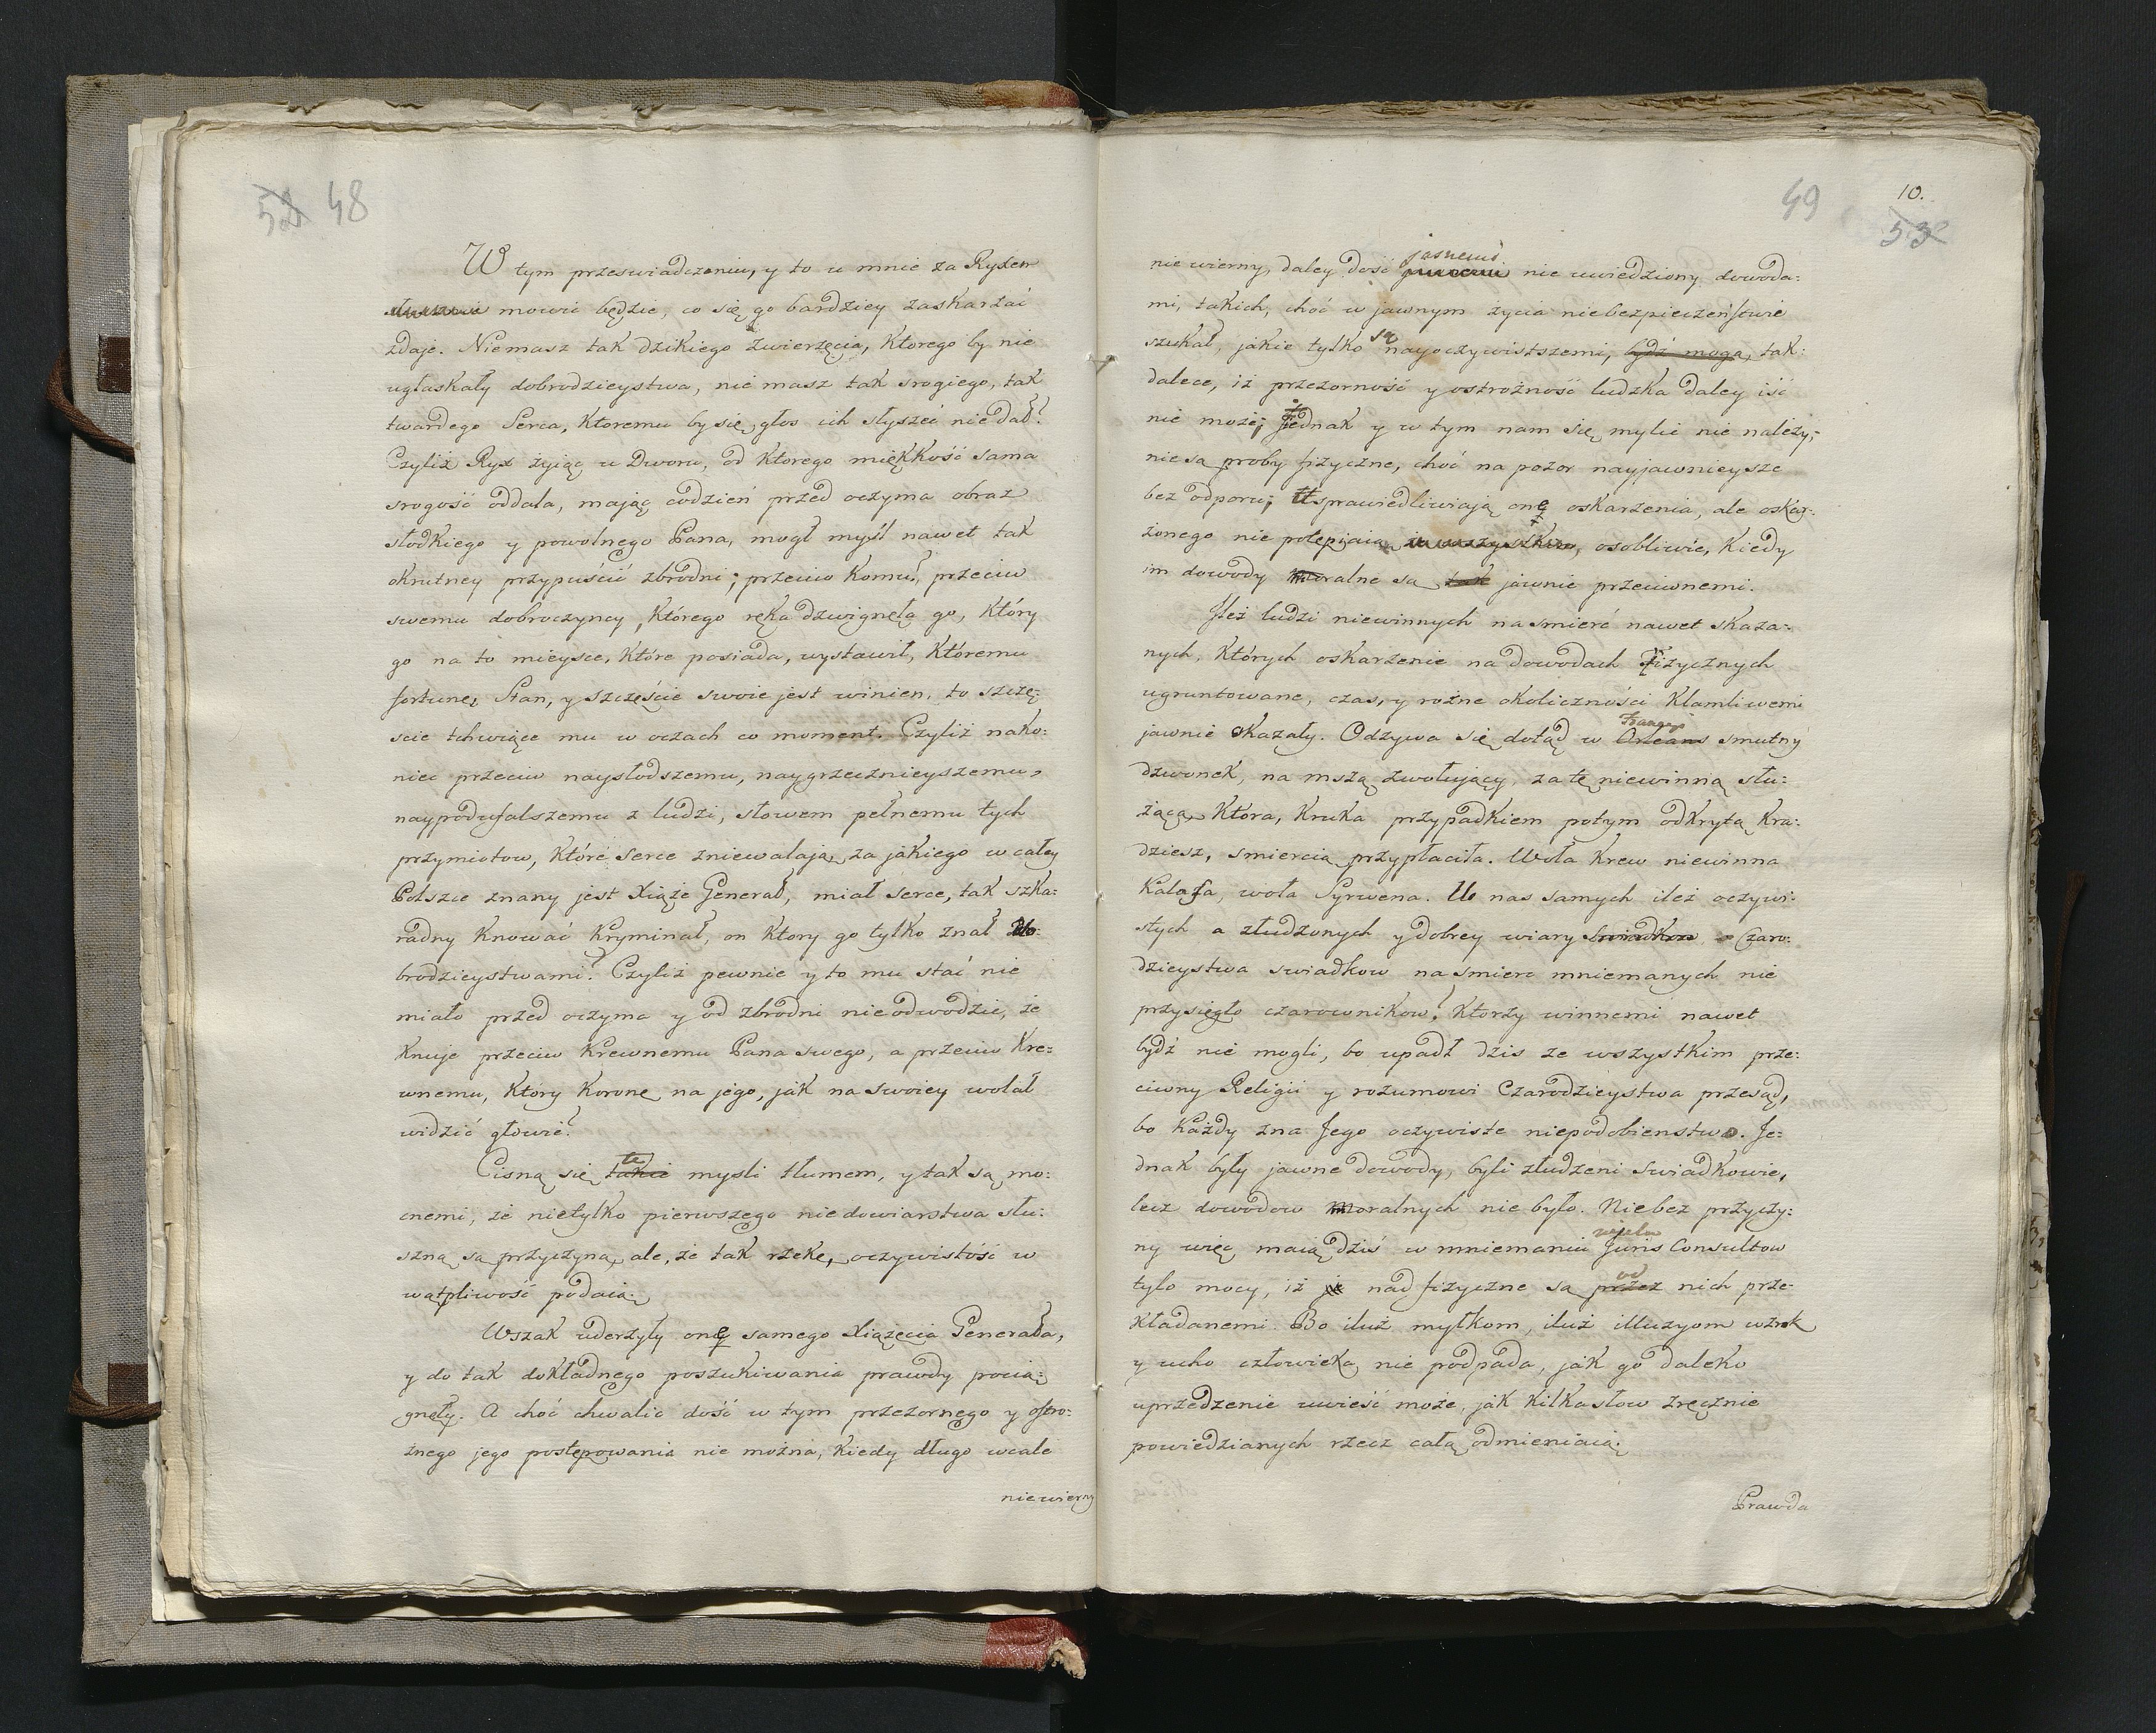 52 48
W tym przeswiadczeniu, y to u mnie za Ryxem
mowić będzie, co się go bardziey zaskarzać
zdaje. Niemasz tak dzikiego zwierzęcia, Ktorego by nie
ugłaskały dobrodzieystwa, nie masz tak srogiego, tak
twardego Serca, Ktoremu by się głos ich słyszeć nie dał?
Czyliż Ryx żyiąc u Dworu, od Ktorego miękkość sama
srogość oddala, mając codzień przed oczyma obraz
słodkiego y powolnego Pana, mogł myśl nawet tak
okrutney przypuścić zbrodni; przeciw Komu? przeciw
swemu dobroczyncy, Którego ręka dzwignęła go, Który
go na to mieysce, Które posiada, wystawił, Któremu
fortunę, Stan, y szczęście swoie jest winien, to szczę-
scie tchwiące mu w oczach co moment. Czyliż nako-
niec przeciw naysłodszemu, naygrzecznieyszemu,
naypodufalszemu z ludzi, słowem pełnemu tych
przymiotow, Które serce zniewalają, za jakiego w całey
Polszcze znany jest Xiąże Generał, miał serce, tak szka-
radny Knować Kryminał, on Ktory go tylko znał do-
brodzieystwami? Czyliż pewnie y to mu stać nie
miało przed oczyma y od zbrodni nieodwodzić, że
Knuje przeciw Krewnemu Pana swego, a przeciw Kre-
wnemu, Ktory Koronę na jego, jak na swoiey wolał
widzić głowie?
Cisną się takie te mysli tłumem, y tak są mo-
cnemi, że nietylko pierwszego niedowiarstwa słu-
szną są przyczyną, ale, że tak rzekę, oczywistość w
wątpliwość podaią.
Wszak uderzyły one samego Xiążęcia Generała,
y do tak dokładnego poszukiwania prawdy pocią-
gnęły. A choć chwalić dość w tym przezornego y ostro-
żnego jego postępowania nie można, Kiedy długo wcale
niewierny
49 10.
53
niewierny, daley dość jasnemi nie uwiedziony dowoda-
mi, takich, choć w jawnym życia niebezpieczeństwie
szukał, jakie tylko są nayoczywistszemi, bydź mogą, tak-
dalece, iż przezorność y ostrożność ludzka daley iść
nie może; jednak y w tym nam się mylić nie należy;
nie są proby fizyczne, choć na pozor nayjawnieysze
bez odporu; Usprawiedliwiają one oskarzenia, ale oskar-
żonego nie potępiaią ze wszystkim, osobliwie, Kiedy
im dowody moralne są tak jawnie przeciwnemi.
Ileż ludzi niewinnych na smierć nawet skaza-
nych, Których oskarzenie na dowodach Fizycznych
ugruntowane, czas, y rożne okoliczności Kłamliwemi
jawnie Okazały. Odzywa się dotąd w Orleans Francyi smutny
dzwonek, na mszą zwołujący, za tę niewinną słu-
żącą, Która, Kruka przypadkiem potym odkrytą Kra-
dziesz, smiercią przypłaciła. Woła Krew niewinna
Kalasa, woła Syrwena. U nas samych ileż oczywi-
stych a złudzonych y dobrey wiary swiadkow o Czaro-
dzieystwa swiadkow na smierć mniemanych nie
przysięgło czarownikow? Ktorzy winnemi nawet
bydź nie mogli, bo upadł dzis ze wszystkim prze-
ciwny Religii y rozumowi Czarodzieystwa przesąd,
bo Każdy zna Jego oczywiste niepodobienstwo. Je-
dnak były jawne dowody, byli złudzeni swiadkowie,
lecz dowodow moralnych nie było. Niebez przyczy-
ny więc maią dziś w mniemaniu wielu Juris Consultow
tylo mocy, iż je nad fizyczne są przez od nich prze-
kładanemi. Bo iluż myłkom, iluż illuzyom wzrok
y ucho człowieka nie podpada, jak go daleko
uprzedzenie uwieść może, jak Kilka słow zręcznie
powiedzianych rzecz całą odmieniaią.
Prawda